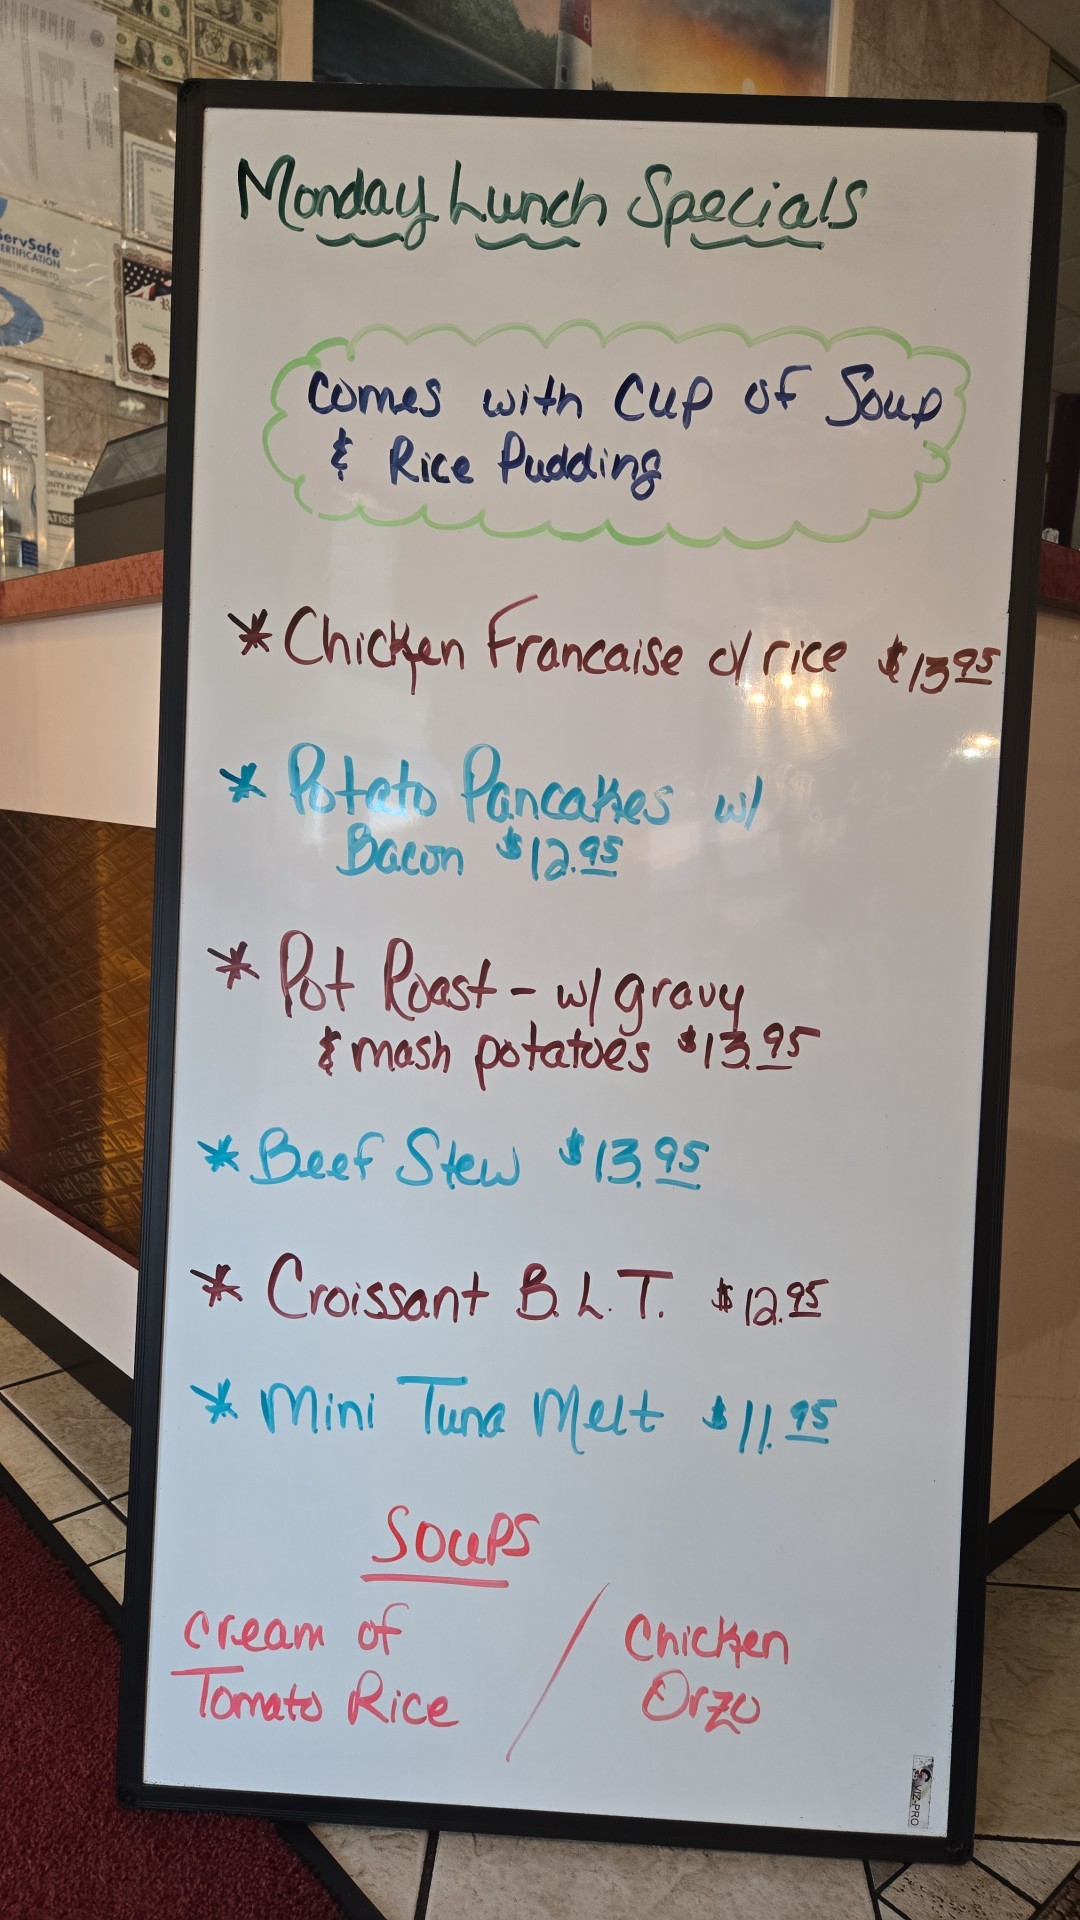 Monday Lunch Specials
comes with Cup of Soup
& Rice Pudding
* Chicken Francaise c/ rice $13.95
* Potato Pancakes w/
Bacon $12.95
* Pot Roast - w/ gravy
& mash potatoes $13.95
* Beef Stew $13.95
* Croissant B.L.T. $12.95
* Mini Tuna Melt $11.95
Soups
cream of
Tomato Rice
/
Chicken
Orzo
ServSafe
CERTIFICATION
VIZ-PRO